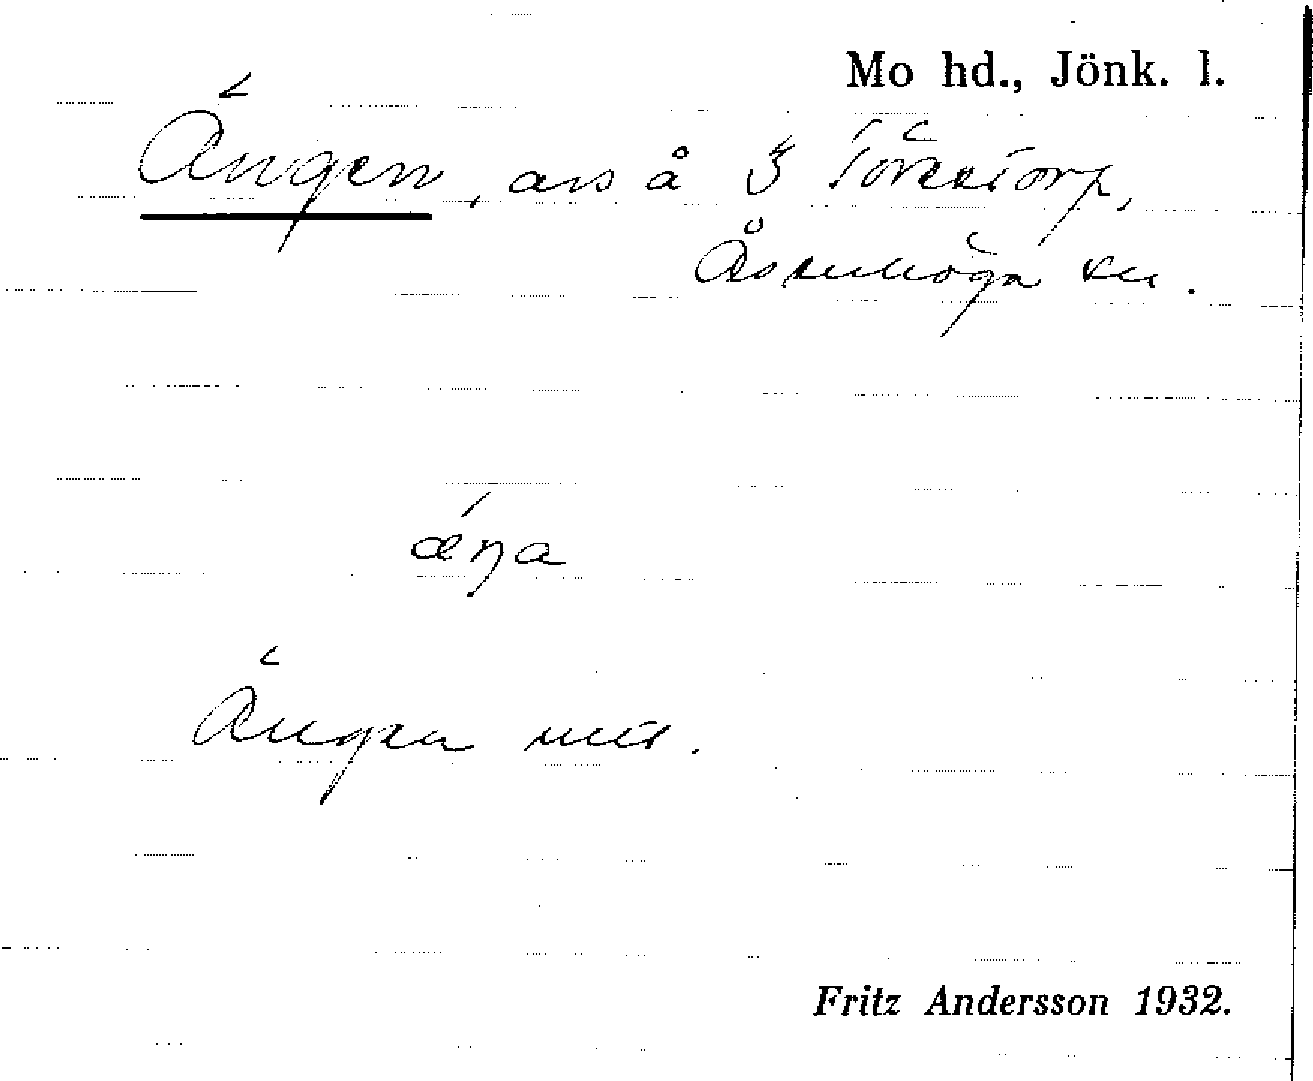 Mo hd., Jönk. l.
Ängen, avs å S Törestorp,
Åsenhöga sn.
ǽŋa
Ängen
Fritz Andersson 1932.